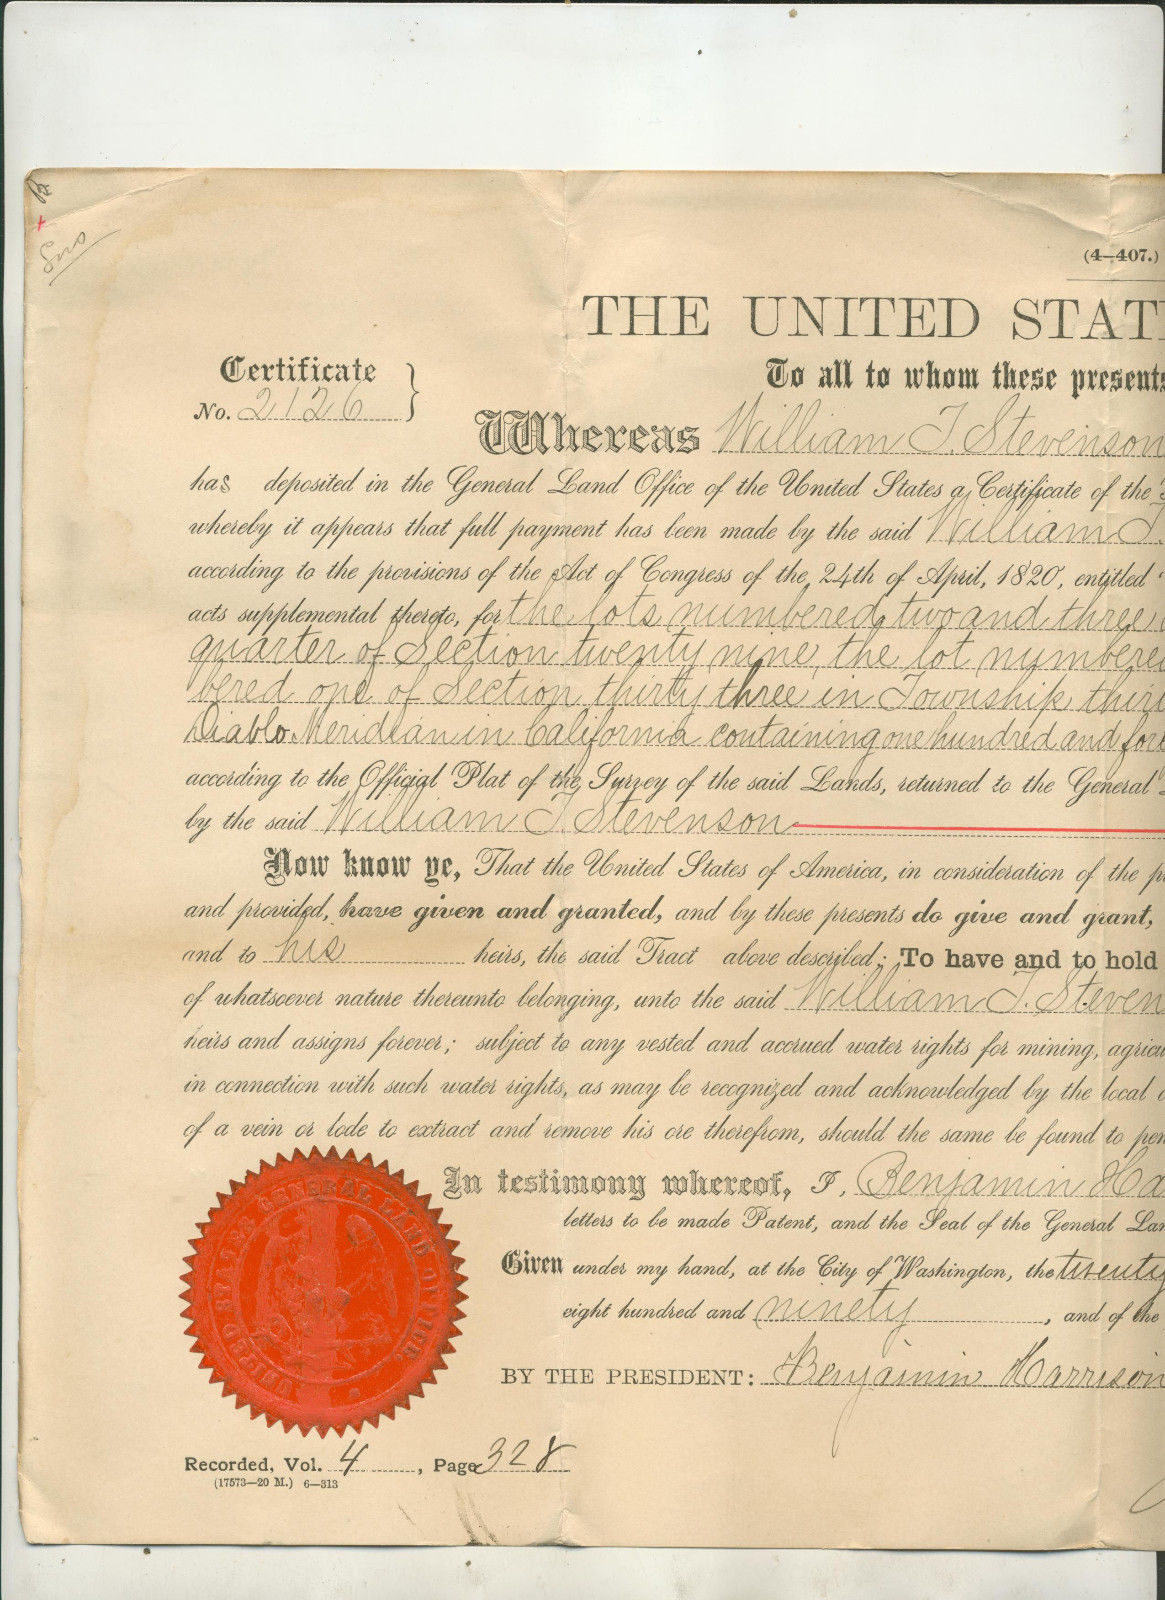 (4—407.)
THE UNITED STAT
Certificate
To all to whom these presents
No. 2126
Whereas William T. Stevenson
has deposited in the General Land Office of the United States a Certificate of the
whereby it appears that full payment has been made by the said William T.
according to the provisions of the Act of Congress of the 24th of April, 1820, entitled "
acts supplemental thereto, for the lots numbered two and three
quarter of Section twenty nine, the lot numbere
bered one of Section thirty three in Township thir
Diablo Meridian in California containing one hundred and for
according to the Official Plat of the Survey of the said Lands, returned to the General
by the said William T. Stevenson
Now know ye, That the United States of America, in consideration of the p
and provided, have given and granted, and by these presents do give and grant,
and to his heirs, the said Tract above described; To have and to hold
of whatsoever nature thereunto belonging, unto the said William T. Steven
heirs and assigns forever; subject to any vested and accrued water rights for mining, agricu
in connection with such water rights, as may be recognized and acknowledged by the local
of a vein or lode to extract and remove his ore therefrom, should the same be found to pen
In testimony whereof, I, Benjamin Ha
letters to be made Patent, and the Seal of the General Lan
Given under my hand, at the City of Washington, the twenty
eight hundred and ninety, and of the
BY THE PRESIDENT: Benjamin Harrison
UNITED STATES GENERAL LAND OFFICE.
Recorded, Vol. 4, Page 328
(17573—20 M.) 6—313